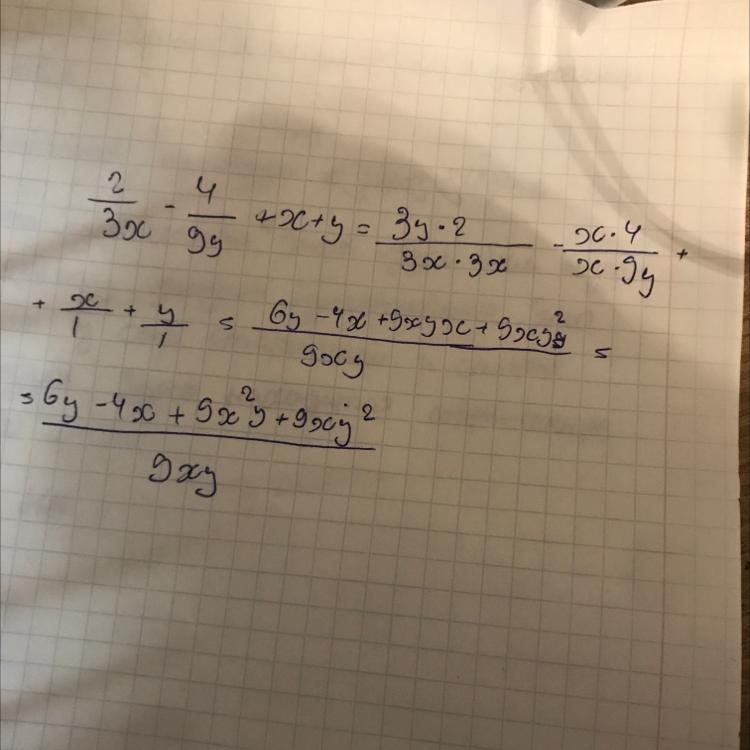 2/3x - 4/9y + x + y = 3y · 2/3x · 3x - x · 4/x · 9y +
+ x/1 + y/1 = 6y - 4x + 9xyx + 9xy²/9xy =
= 6y - 4x + 9x²y + 9xy²/9xy